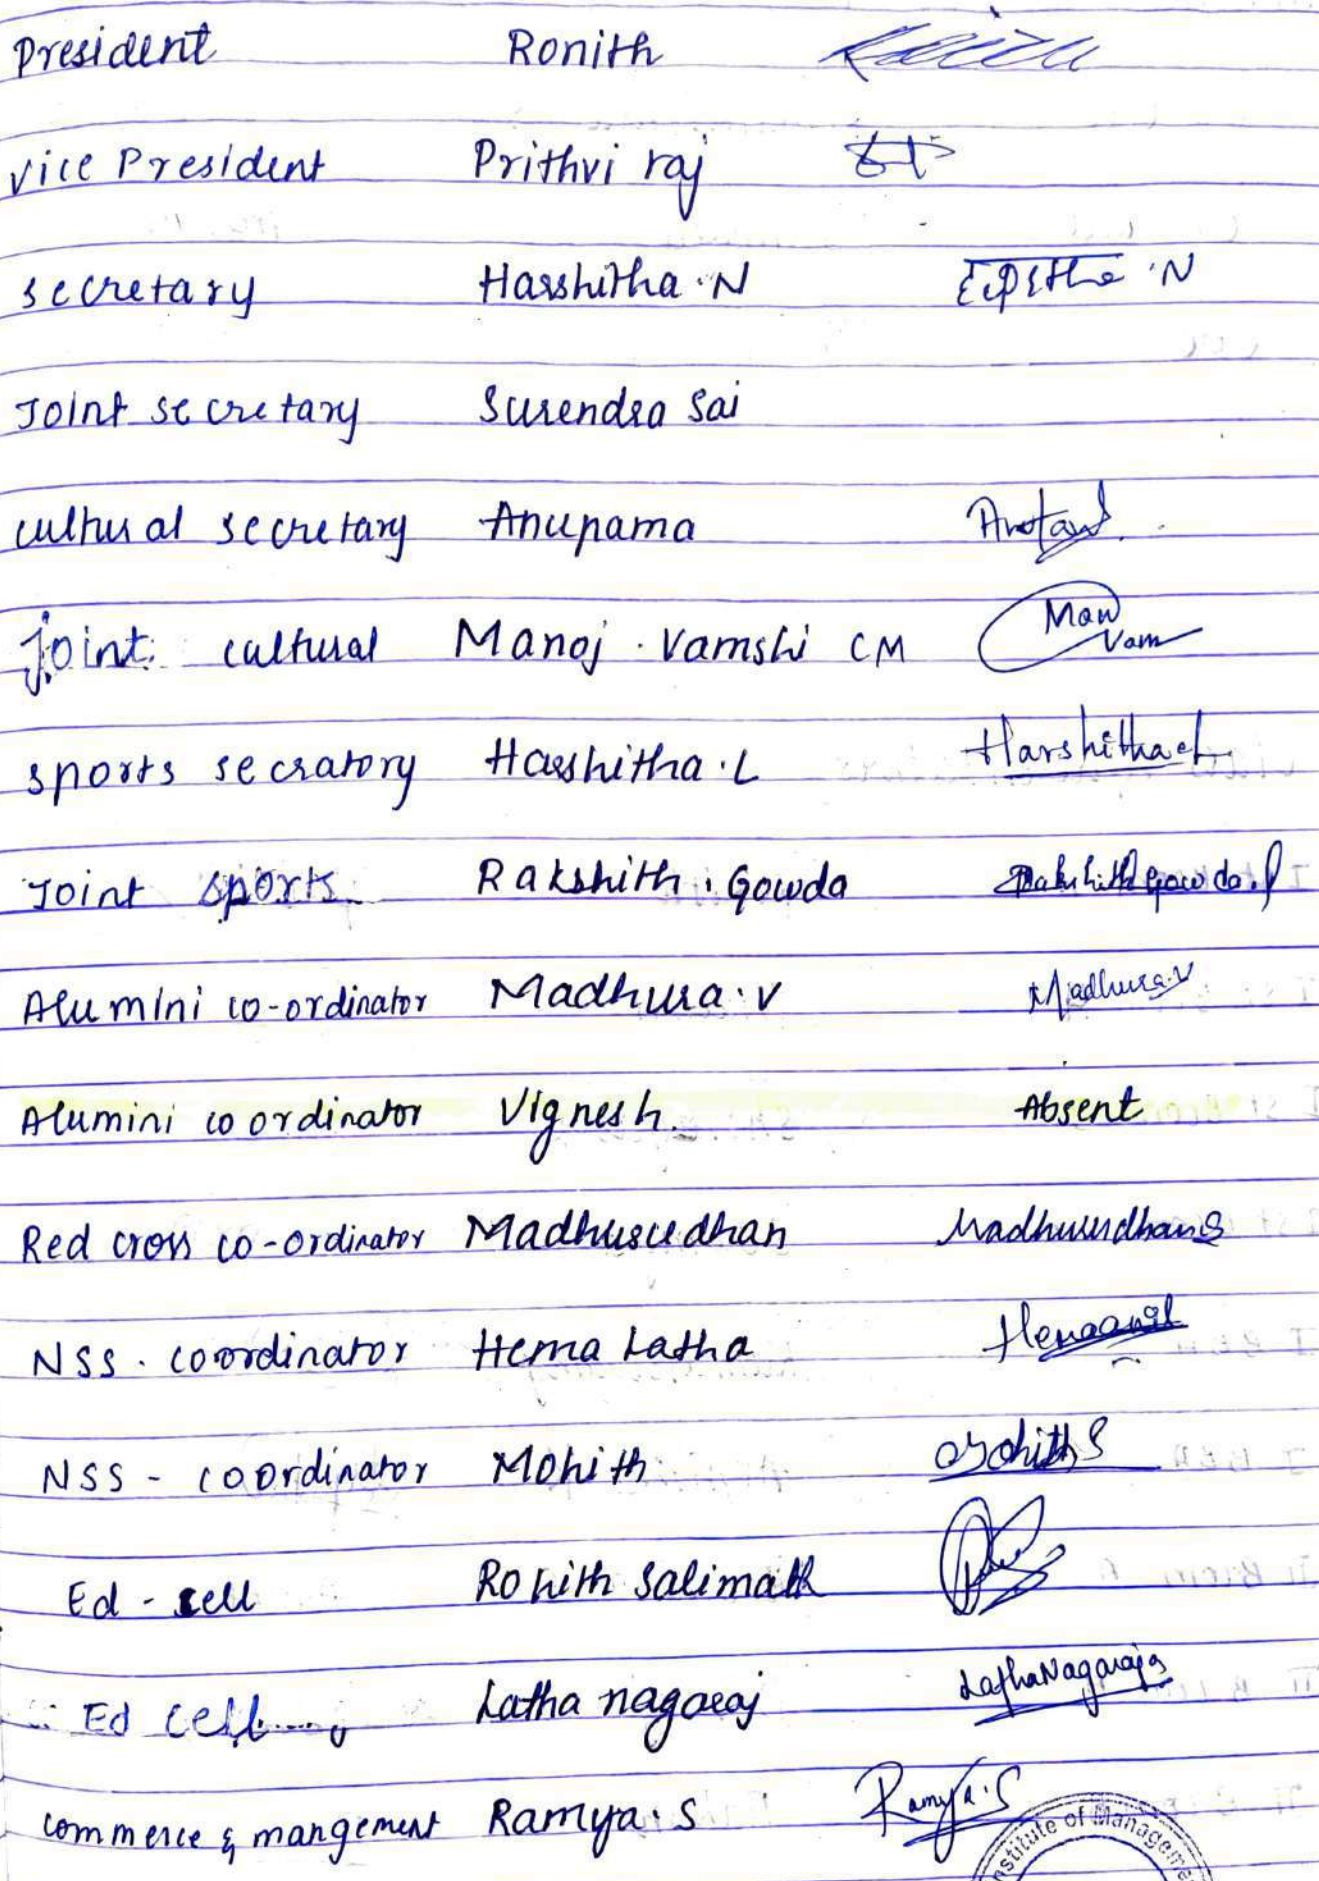 President Ronith
vice President Prithvi raj
secretary Harshitha . N
Joint secretary Surendra Sai
cultural secretary Anupama
Joint cultural Manoj . Vamshi CM Man
Vam
sports secratory Harshitha . L Harshitha L
Joint sports Rakshith . Gowda Rakshith gowda.
Alumini co-ordinator Madhura . V Madhura.V
Alumini coordinator Vignesh. Absent
Red cross co-ordinator Madhusudhan Madhusudhan S
NSS . coordinator Hema Latha
NSS - coordinator Mohith Mohith S
Ed - cell Rohith Salimath
Ed cell Latha nagaraj Latha Nagaraja
commerce & mangement Ramya . S Ramya.S
stitute of Manageme